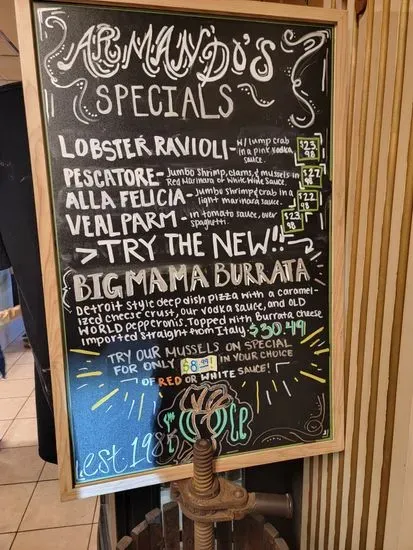 ARMANDO'S
SPECIALS
LOBSTER RAVIOLI- W/ lump crab in a pink vodka sauce. $23.98
PESCATORE- Jumbo Shrimp, clams, & mussels in Red Marinara or White Wine Sauce. $27.98
ALLA FELICIA- Jumbo shrimp & crab in a light marinara sauce. $22.98
VEAL PARM- in tomato sauce, over spaghetti. $23.98
>TRY THE NEW!!
BIG MAMA BURRATA
Detroit Style deep dish pizza with a caramel-
ized cheese crust, our vodka sauce, and OLD
WORLD pepperonis. Topped with Burrata cheese
imported straight from Italy. $30.49
TRY OUR MUSSELS ON SPECIAL
FOR ONLY $8.99! IN YOUR CHOICE
OF RED OR WHITE SAUCE!
est. 1986